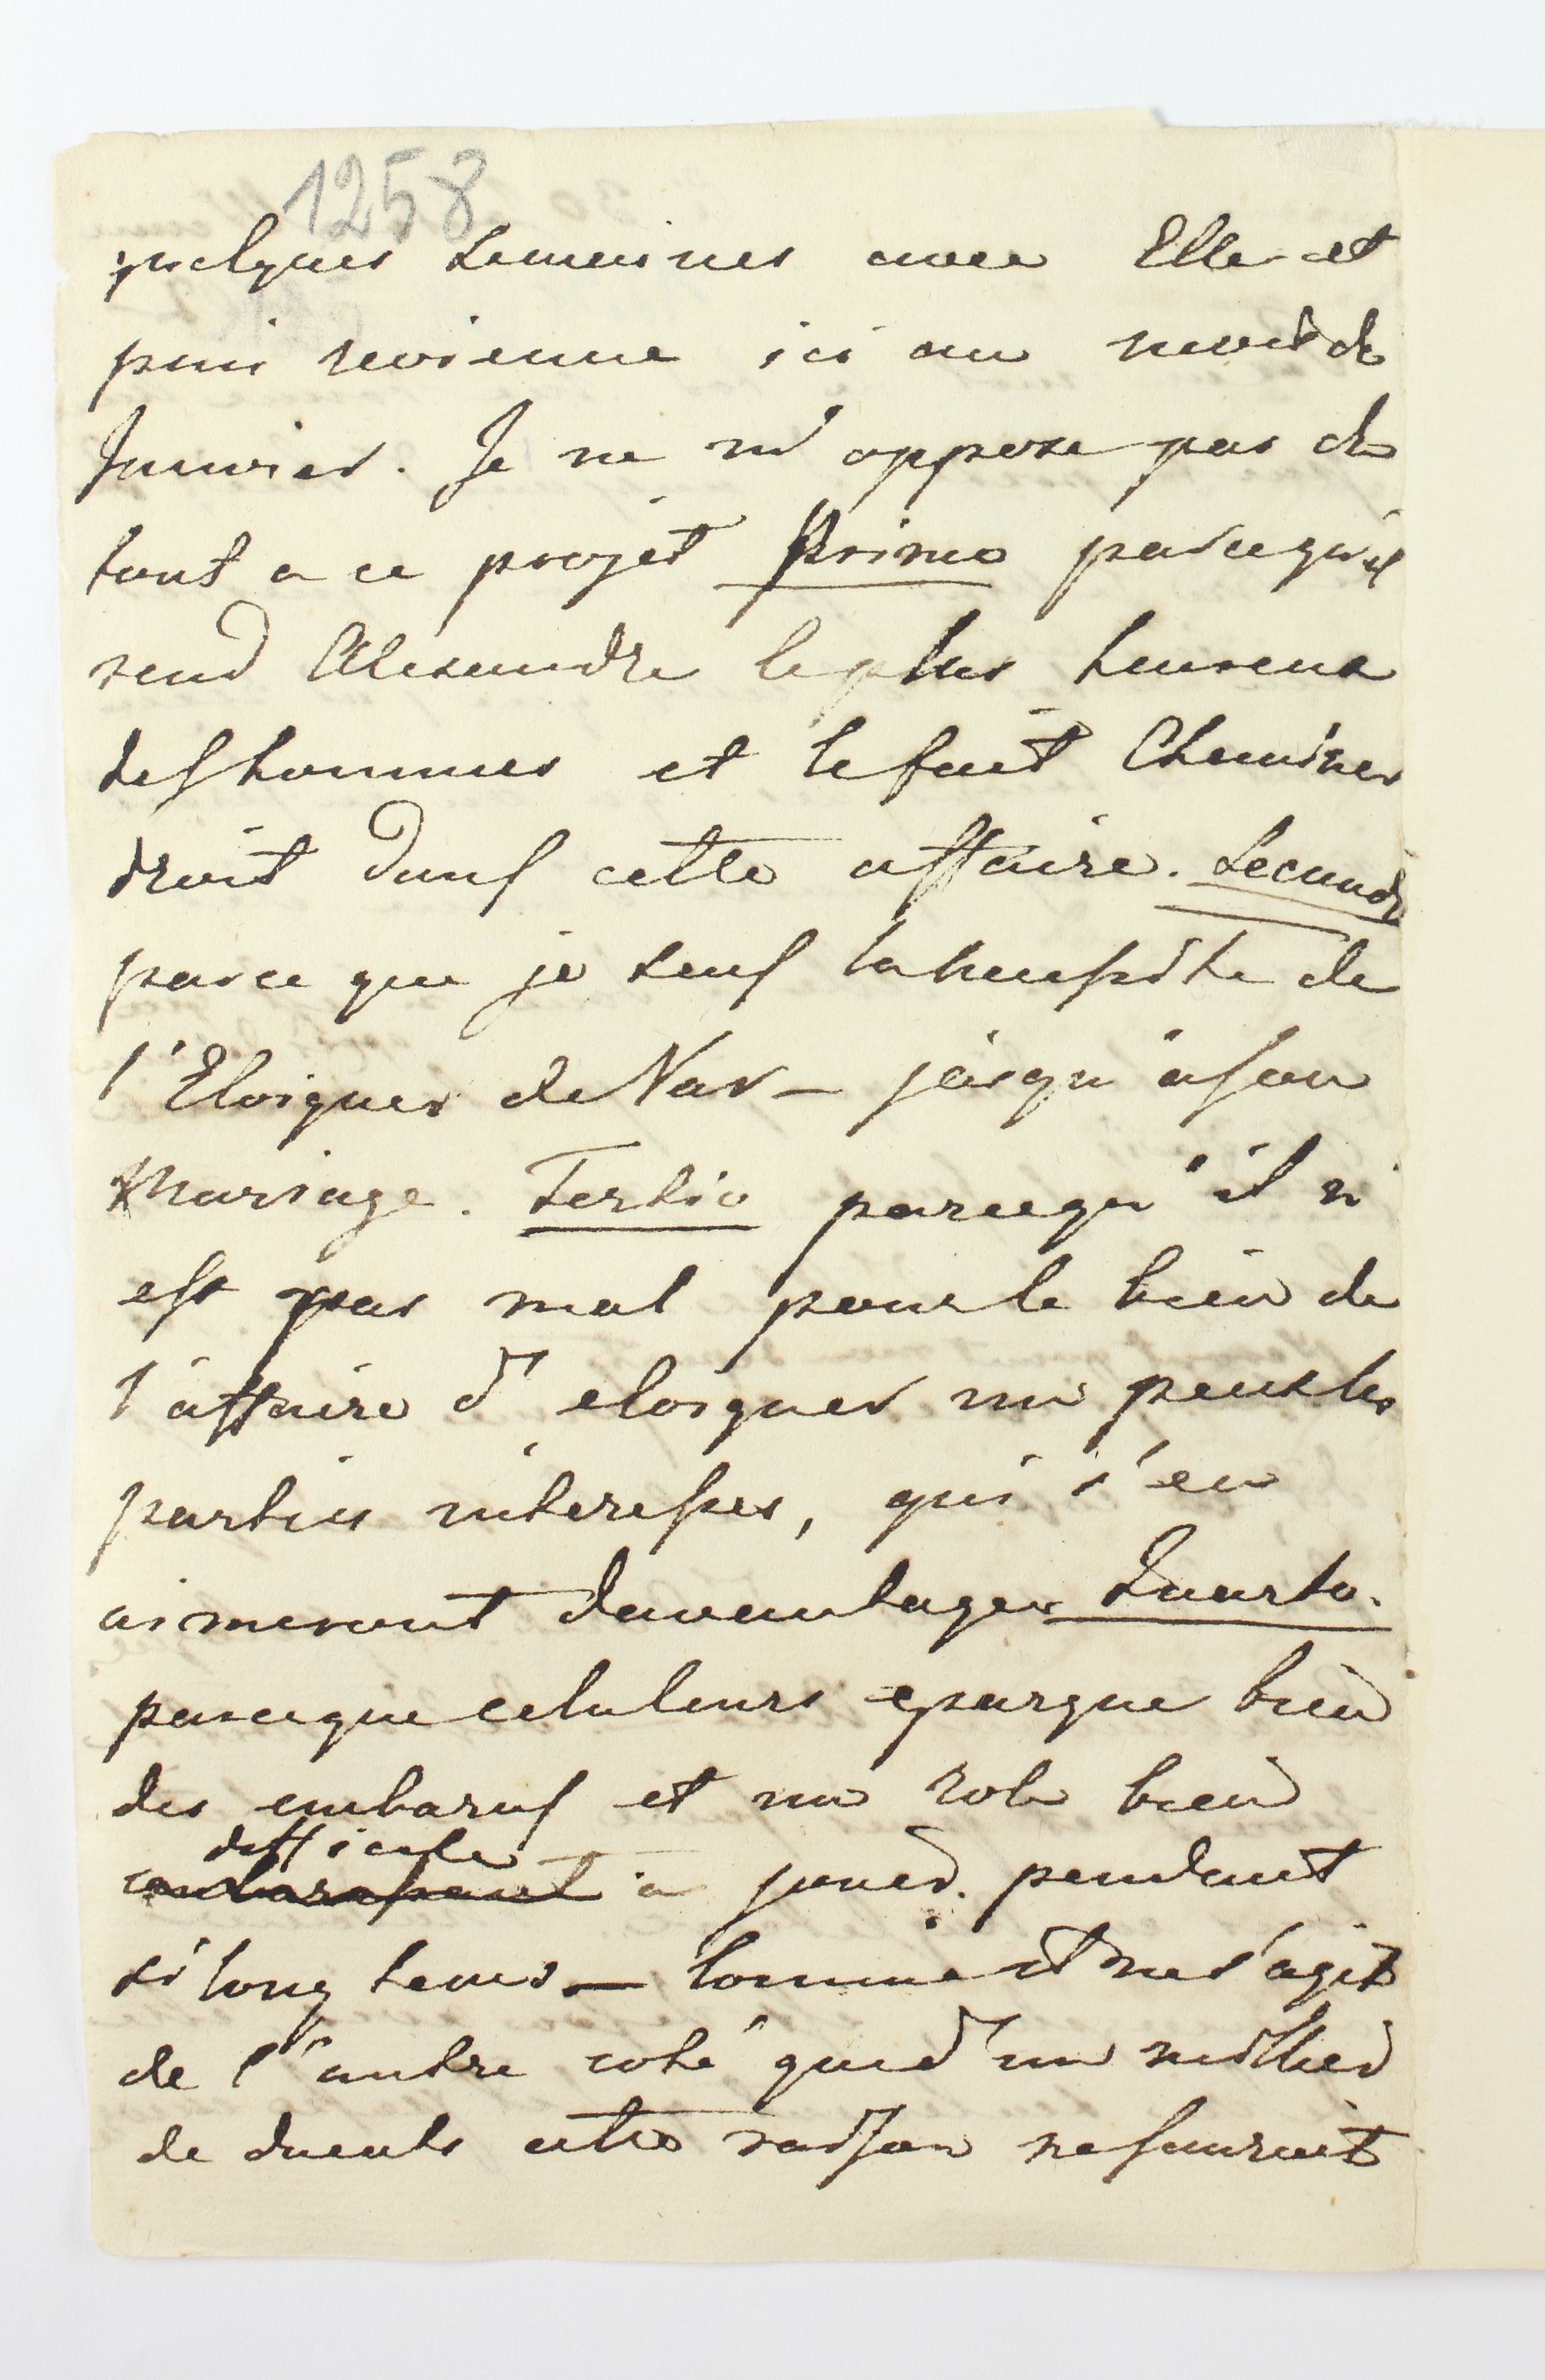 1258
quelques semaines avec Elle et
puis revienne ici au mois de
Janvier. Je ne m'oppose pas du
tout a ce projet Primo parcequ'il
rend Alexandre le plus heureux
des hommes et le fait Cheminer
droit dans cette affaire. Secundo
parce que je sens la necessité de
l'Eloigner de Var— jusqu'à son
Mariage. Tertio parcequ'il n'
est pas mal pour le bien de
l'affaire d'eloigner un peu les
parties interesses, qui s'en
aimeront davantage. Quarto.
parceque cela leurs epargne bien
des embaras et un role bien
difficile
embarassant à jouer. pendant
si long tems — Comme il ne s'agit
de l'autre coté que d'un millier
de ducats cette raison ne sauroit